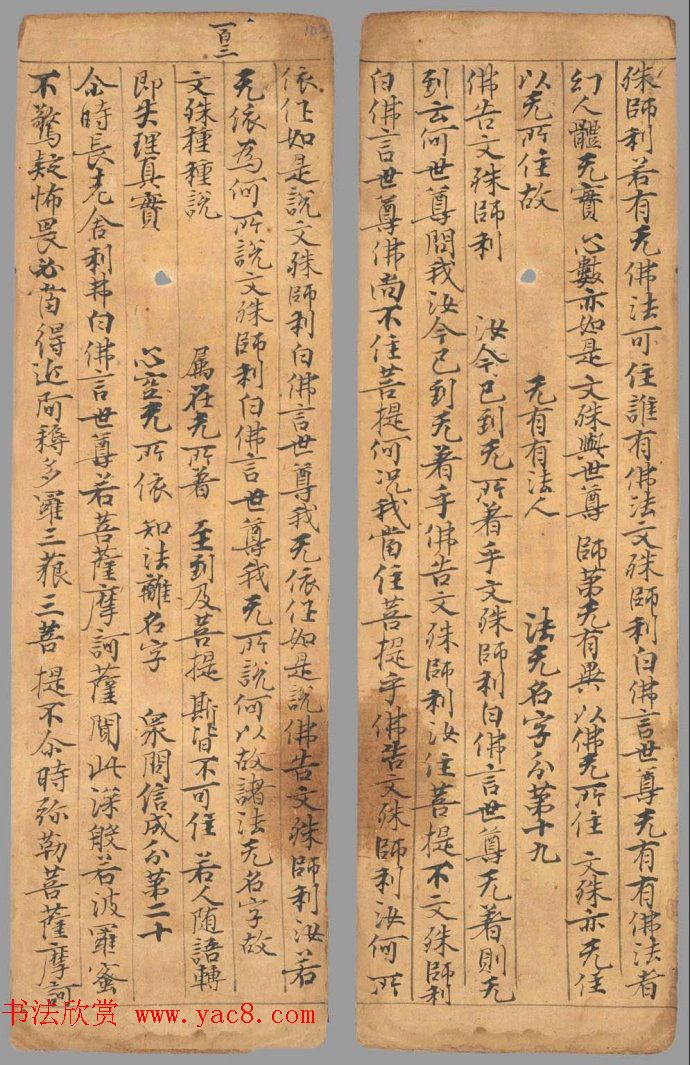 殊師利若有无佛法可住誰有佛法文殊師利白佛言世尊无有有佛法者
幻人體无實 心數亦如是 文殊與世尊 師第无有異 以佛无所住 文殊亦无住
以无所住故 无有有法人 法无名字分第十九
佛告文殊師利 汝今已到无所着乎文殊師利白佛言世尊无著則无
到云何世尊問我汝今已到无着乎佛告文殊師利汝住菩提不文殊師利
白佛言世尊佛尚不住菩提何況我當住菩提乎佛告文殊師利汝何所
一百三
103
依住如是說文殊師利白佛言世尊我无依住如是說佛告文殊師利汝若
无依為何所說文殊師利白佛言世尊我无所說何以故諸法无名字故
文殊種種說 屬在无所著 至到及菩提 斯皆不可住 若人隨語轉
即失理真實 心空无所依 知法離名字 衆聞信成分第二十
尒時長老舍利弗白佛言世尊若菩薩摩訶薩聞此深般若波羅蜜
不驚疑怖畏必當得近阿耨多羅三藐三菩提不尒時弥勒菩薩摩訶
书法欣赏 www.yac8.com